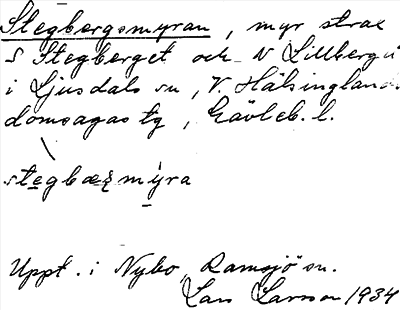 Stegbergsmyran, myr strax
S Stegberget och N Lillberget
i Ljusdals sn, V. Hälsinglands
domsagas tg, Gävleb. l.
stegbæʂmýra
Uppt. i Nybo, Ramsjö sn.
Lars Larsson 1934